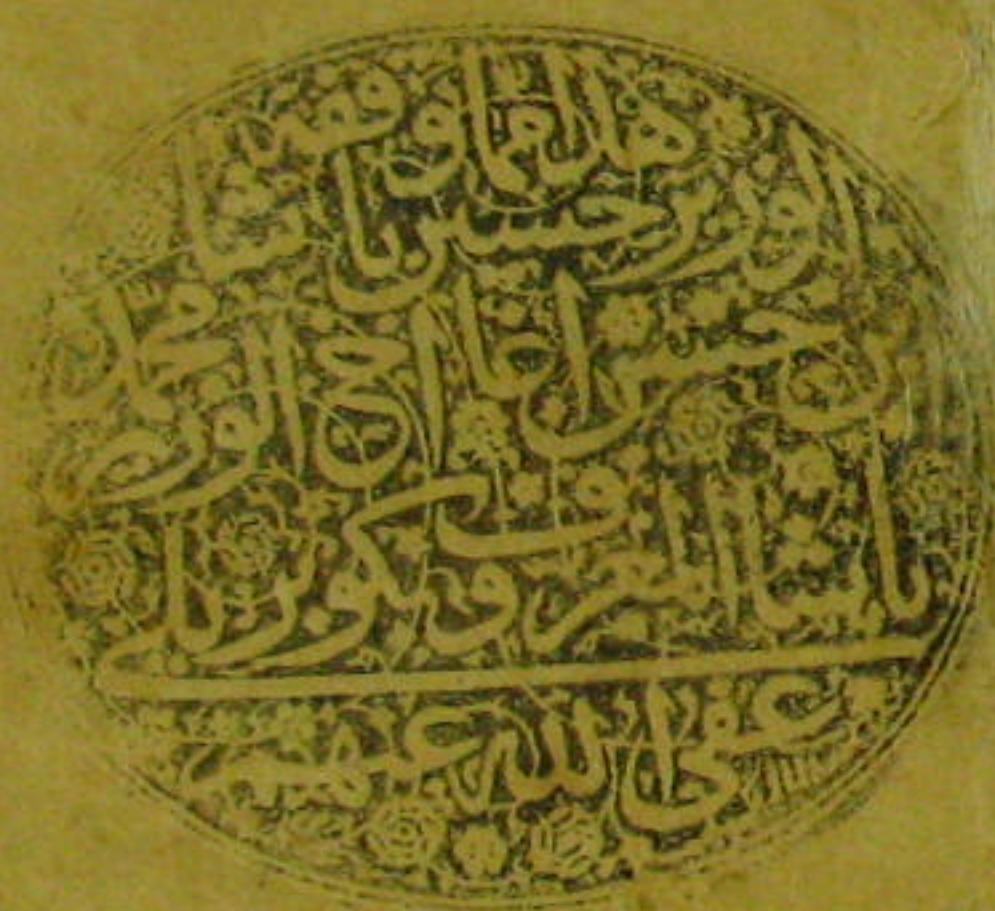 هذا مما وقفه
الوزير حسين باشا
بن حسن اغا اخ الوزير محمد
باشا المعروف بكوپريلى
عفى الله عنهم